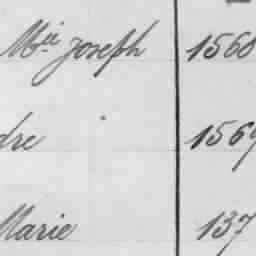 Mie Joseph 1560
dre 1569
Marie 137